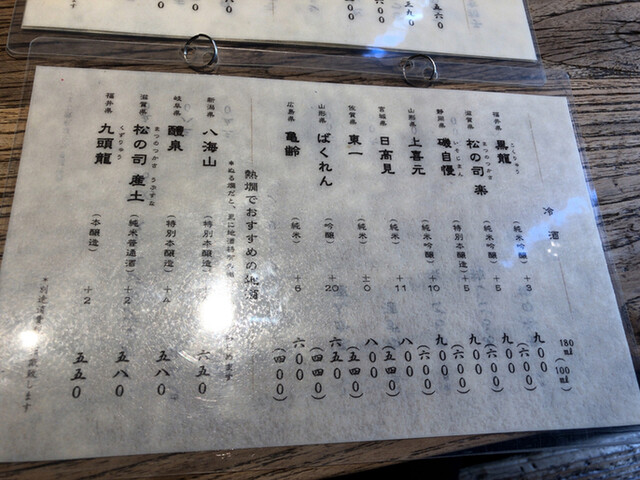 冷酒
180ml (100ml)
福井県 黒龍 こくりゅう (純米吟醸) +3 九〇〇 (六〇〇)
滋賀県 松の司 楽 まつのつかさ (純米吟醸) +5 九〇〇 (六〇〇)
静岡県 磯自慢 いそじまん (特別本醸造) +5 九〇〇 (六〇〇)
山形県 上喜元 (純米吟醸) +10 九〇〇 (六〇〇)
宮城県 日高見 (純米) +11 八〇〇 (五四〇)
佐賀県 東一 (純米) ±0 八〇〇 (五四〇)
山形県 ばくれん (吟醸) +20 六五〇 (四四〇)
広島県 亀齢 (純米) +6 六〇〇 (四〇〇)
熱燗でおすすめの地酒
新潟県 八海山 (特別本醸造) 六五〇
岐阜県 醴泉 (特別本醸造) 五八〇
滋賀県 松の司 産土 まつのつかさ うぶすな (純米普通酒) +2 五八〇
福井県 九頭龍 くずりゅう (本醸造) +2 五五〇